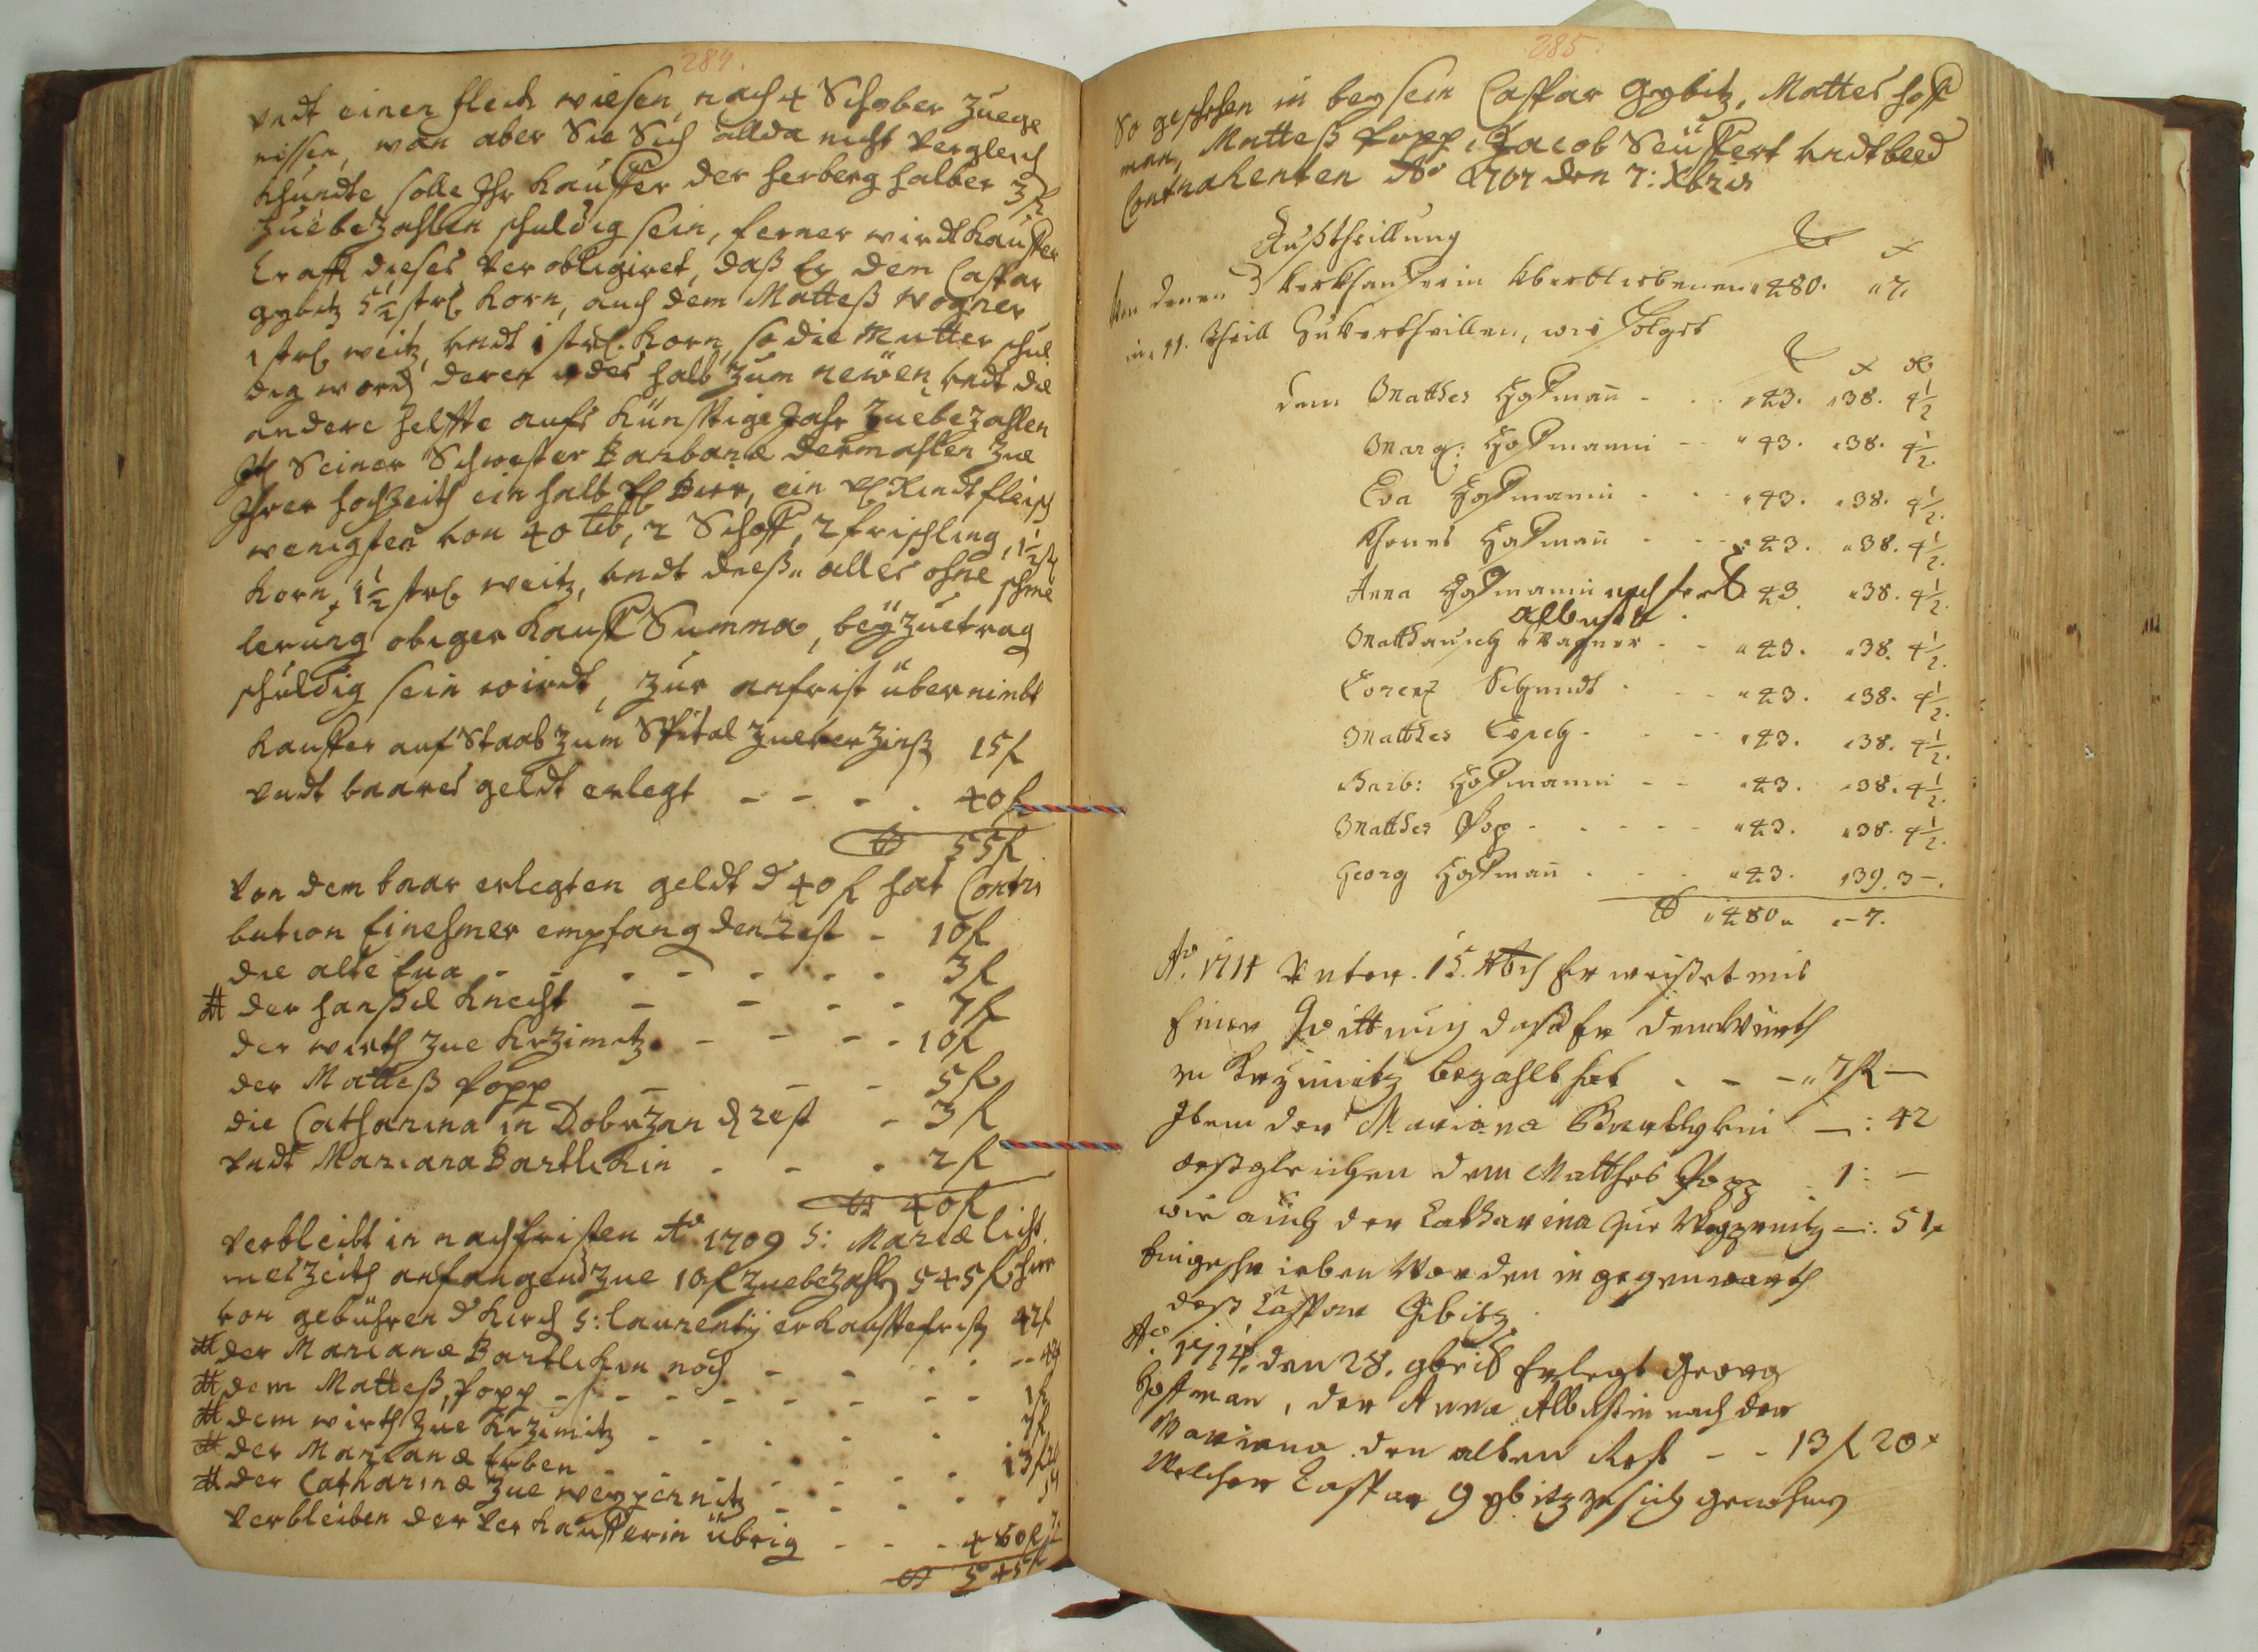 284.
vndt einen fleck wiesen, nach 4 Schober Zuege
nissen, wan aber Sie Sich allda nicht vergleich
khundte solle Ihr Kauffer der herberg halber 3 f
Zue bezahlen schuldig sein, ferner wirdt Kauffer
krafft dieses verobligiret, daß Er dem Caspar
Gybitz 5½ str. Korn, auch dem Matteß Wogner
1 str. weitz, vndt 1 str. Korn, so die Mutter schul
dig word, deren halb zum newen, vndt die
andere helffte aufs Künfftige Jahr Zuebezahlen
Seiner Schwester Barbaræ dermahlen Zue
Ihrer hochzeith ein halb Bier, ein Rindtfleisch
wenigsten von 40 lb, 2 Schoff, 2 frischling, 1½ str
Korn, 1½ str. weitz, vndt dieß alles ohne schme
lerung obiger Kauff Summa, beyzuetrag
schuldig sein wirdt, zur anfrist übernimbt
Kauffer auf Staab zum Spital zueverzinß 15 f
vndt baares geldt erlegt - - - - 40 f
55 f
Von dem baar erlegten geldt d 40 f hat Contri
bution Einehmer empfang den rest - 10 f
die alte Eva - - - - - - - 3 f
der hanßil Knecht - - - - 7 f
der wirth zue Krzimitz - - - - 10 f
der Matteß Popp - - - 5 f
die Catharina in Dobrzan d rest - 3 f
vndt Mariana Bartlikin - - - 2 f
40 f
Verbleibt in nachfristen Ao 1709 S: Mariæ licht.
meszeith anfangend zue 10 f zuebezahlen 545 f hier
von gebühren d Kirch S: Laurentij erkauffte frist 42 f
der Marianæ Bartlikin noch - - - - - 42
dem Matteß Popp - - - - - - - - 1 f
dem wirth zue Krzimitz - - - - - - 7 f
der Marianæ Erben - - - - - - - 13 f
der Catharinæ Zue Weypernitz - - - - - 51
Verbleiben der Verkaufferin übrig - - - 480 f 7
545 f
285.
So geschehen in beysein Caspar Gybitz, Mattes Hoff
man, Matteß Popp, Jacob Seüffert vndt beed
Contrahenten Ao 1707 den 7: Xbris
Außtheillung
f x
Von denen Verkhaufferin Uberblirbenen 480. 7.
in 11. Theill Zu Vertheillen, wie Folget
f x d
dem Matthes Hoffman - - - 43. 38. 4½
Marg: Hoffmanin - - 43. 38. 4½.
Eva Hoffmanin - - 43. 38. 4½.
Thomes Hoffman - - 43. 38. 4½.
Anna Hoffmanin 43 38. 4½.
Matthausch Wagner - - 43. 38. 4½.
Lorenz Schmidt - - - 43. 38. 4½.
Matthes - - - 43. 38. 4½.
Barb: Hoffmanin - - 43. 38. 4½.
Matthes Pop - - - - - 43. 38. 4½.
Georg Hoffman - - - 43. 39. 3 -.
480 - 7.
Ao. 1714 Unter. 15. Erweißet mit
Einer Quittung daß Er dem Würth
zu Krzimitz bezahlt hat - - - 7 f -
Item der Mariana Bartlykin - : 42
deßgleichen dem Matthes Popp - 1 : -
wie auch der Catharina zue Weypernitz - : 51
Eingeschrieben Worden in gegenwarth
deß Caspar Gibitz.
Ao. 1714. den 28. 9bris Erlegt Georg
Hoffman, der Anna nach der
Mariana den alten Rest - - 13 f 20 x
Welcher Caspar Gybitz zu sich genohmen